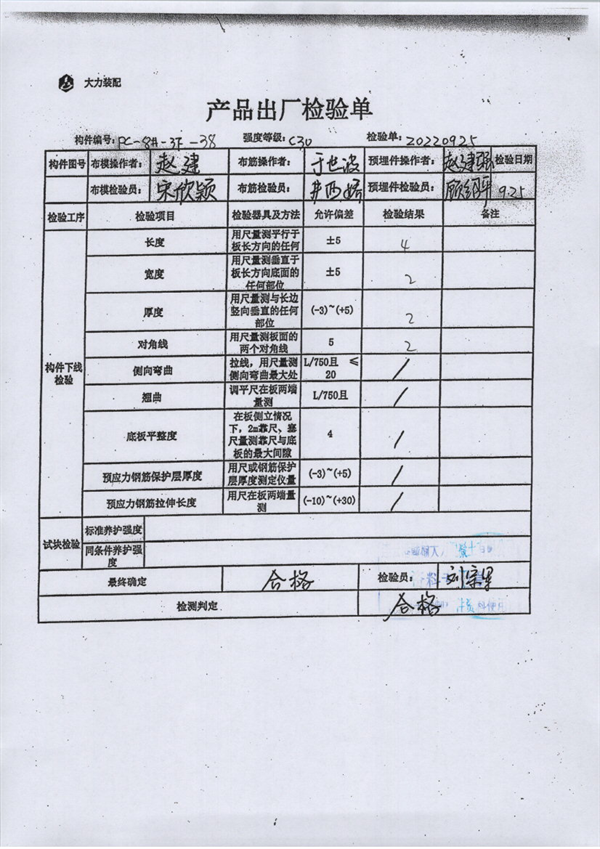 大力装配
产品出厂检验单
构件编号: PC-8#-3F-38 强度等级: C30 检验单: 20220925
构件图号 布模操作者: 赵建 布筋操作者: 于世波 预埋件操作者: 赵建强 检验日期
布模检验员: 宋欣颖 布筋检验员: 预埋件检验员: 9.25
检验工序 检验项目 检验器具及方法 允许偏差 检验结果 备注
构件下线检验
长度 用尺量测平行于板长方向的任何 ±5 4
宽度 用尺量测垂直于板长方向底面的任何部位 ±5 2
厚度 用尺量测与长边竖向垂直的任何部位 (-3)~(+5) 2
对角线 用尺量测板面的两个对角线 5 2
侧向弯曲 拉线，用尺量测侧向弯曲最大处 L/750且 ≤20 /
翘曲 调平尺在板两端量测 L/750且 /
底板平整度 在板侧立情况下，2m靠尺、塞尺量测靠尺与底板的最大间隙 4 /
预应力钢筋保护层厚度 用尺或钢筋保护层厚度测定仪量 (-3)~(+5) /
预应力钢筋拉伸长度 用尺在板两端量测 (-10)~(+30) /
试块检验 标准养护强度
同条件养护强度
最终确定 合格 检验员:
检测判定 合格